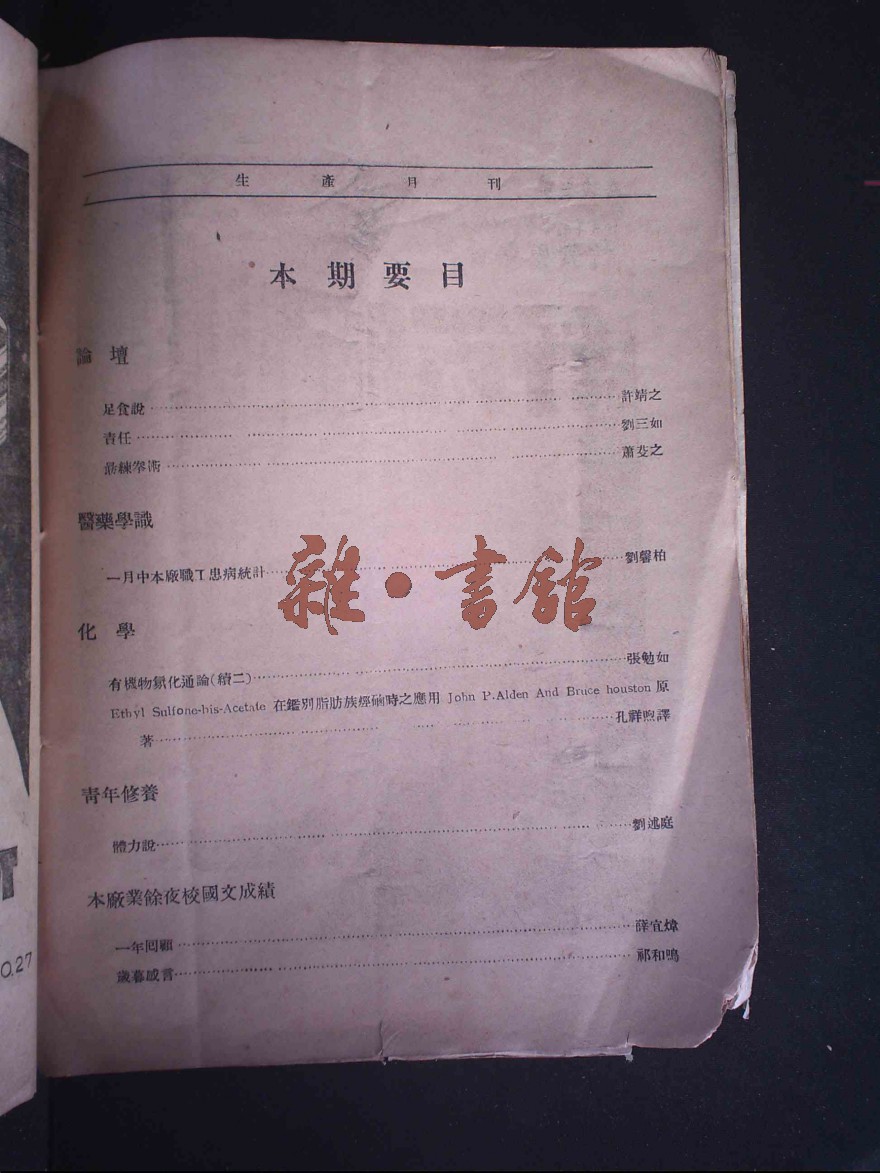 生產月刊
本期要目
論壇
足食說 許靖之
責任 劉三如
練拳術 蕭㚬之
醫藥學識
一月中本廠職工患病統計 劉馨柏
雜·書館
化學
有機物氯化通論(續二) 張勉如
Ethyl Sulfone-bis-Acetate 在鑑別脂肪族煙硷時之應用 John P.Alden And Bruce houston 原
著 孔祥煦譯
青年修養
體力說 劉述庭
本廠業餘夜校國文成績
一年回顧 薛宜煒
歲暮感言 祁和鳴
T
0.27